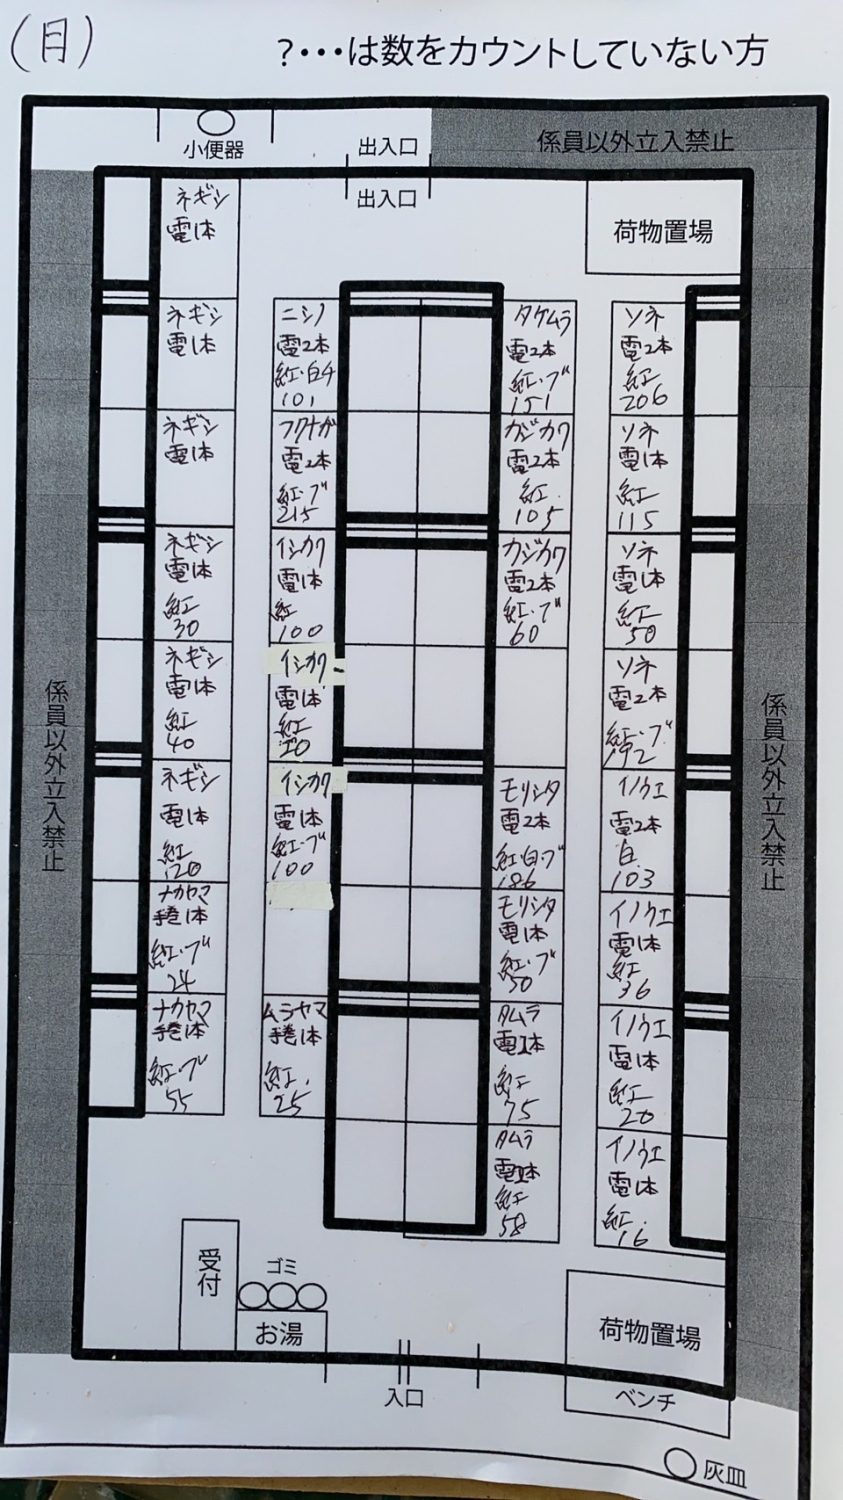 (日)
?・・・は数をカウントしていない方
小便器
出入口
係員以外立入禁止
出入口
荷物置場
係員以外立入禁止
係員以外立入禁止
ネギシ
電1本
ネギシ
電1本
ネギシ
電1本
ネギシ
電1本
紅
30
ネギシ
電1本
紅
40
ネギシ
電1本
紅
120
ナカヤマ
手巻1本
紅・ブ
24
ナカヤマ
手巻1本
紅・ブ
55
ニシノ
電2本
紅・白チ
101
フクナガ
電2本
紅・ブ
215
イシカワ
電1本
紅
100
イシカワ
電1本
紅
イシカワ
電1本
紅・ブ
100
ムラヤマ
手巻1本
紅.
25
タケムラ
電2本
紅・ブ
151
カジカワ
電2本
紅.
105
カジカワ
電2本
紅・ブ
60
モリシタ
電2本
紅・白・ブ
186
モリシタ
電1本
紅・ブ
50
タムラ
電1本
紅
75
タムラ
電1本
紅
58
ソネ
電2本
紅
206
ソネ
電1本
紅
115
ソネ
電1本
紅
50
ソネ
電2本
紅・ブ
192
イノウエ
電2本
白
103
イノウエ
電1本
紅
36
イノウエ
電1本
紅
20
イノウエ
電1本
紅.
16
受付
ゴミ
お湯
入口
荷物置場
ベンチ
灰皿